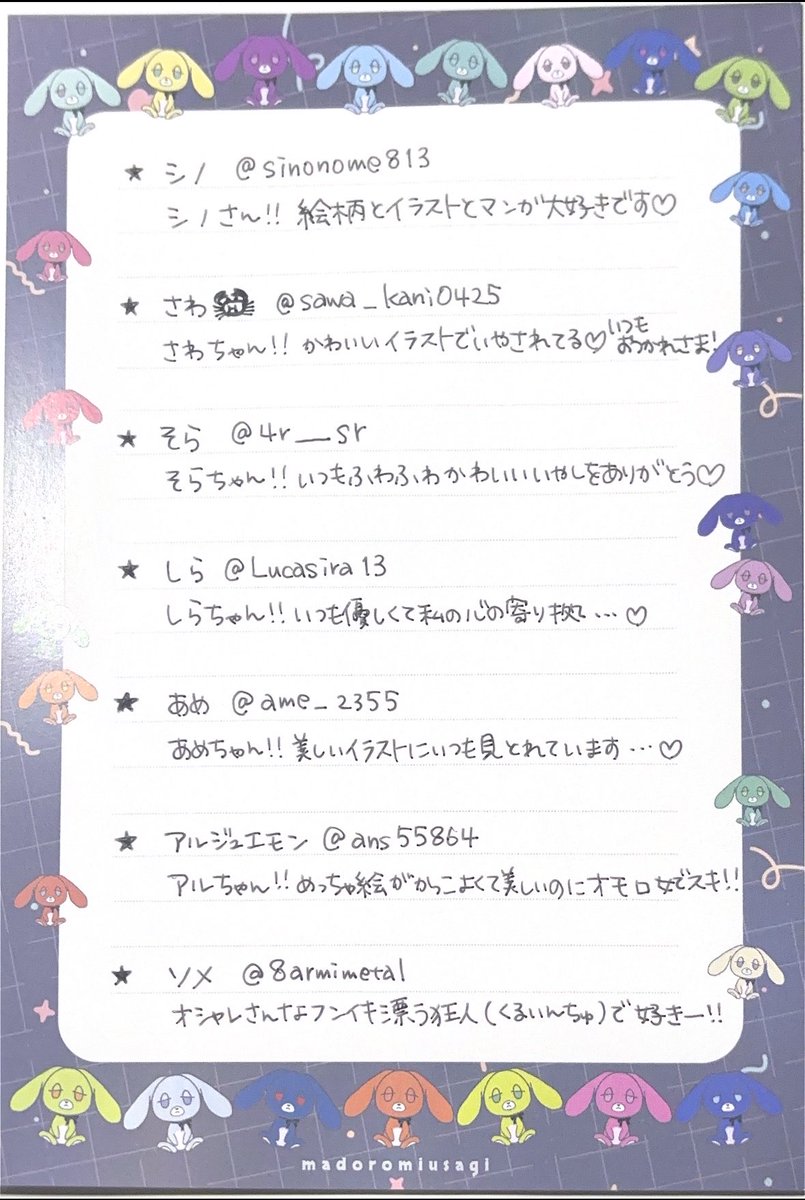 ★ シノ @sinonome813
シノさん!! 絵柄とイラストとマンガ大好きです♡
★ さわ @sawa_kani0425
さわちゃん!! かわいいイラストでいやされてる♡いつもおつかれさま!
★ そら @4r__sr
そらちゃん!! いつもふわふわかわいいいやしをありがとう♡
★ しら @Lucasira13
しらちゃん!! いつも優しくて私の心の寄り拠…♡
★ あめ @ame_2355
あめちゃん!! 美しいイラストにいつも見とれています…♡
★ アルジュエモン @ans55864
アルちゃん!! めっちゃ絵がかっこよくて美しいのにオモロ女でスキ!!
★ ソメ @8armimetal
オシャレさんなフンイキ漂う狂人(くるいんちゅ)で好きー!!
madoromiusagi